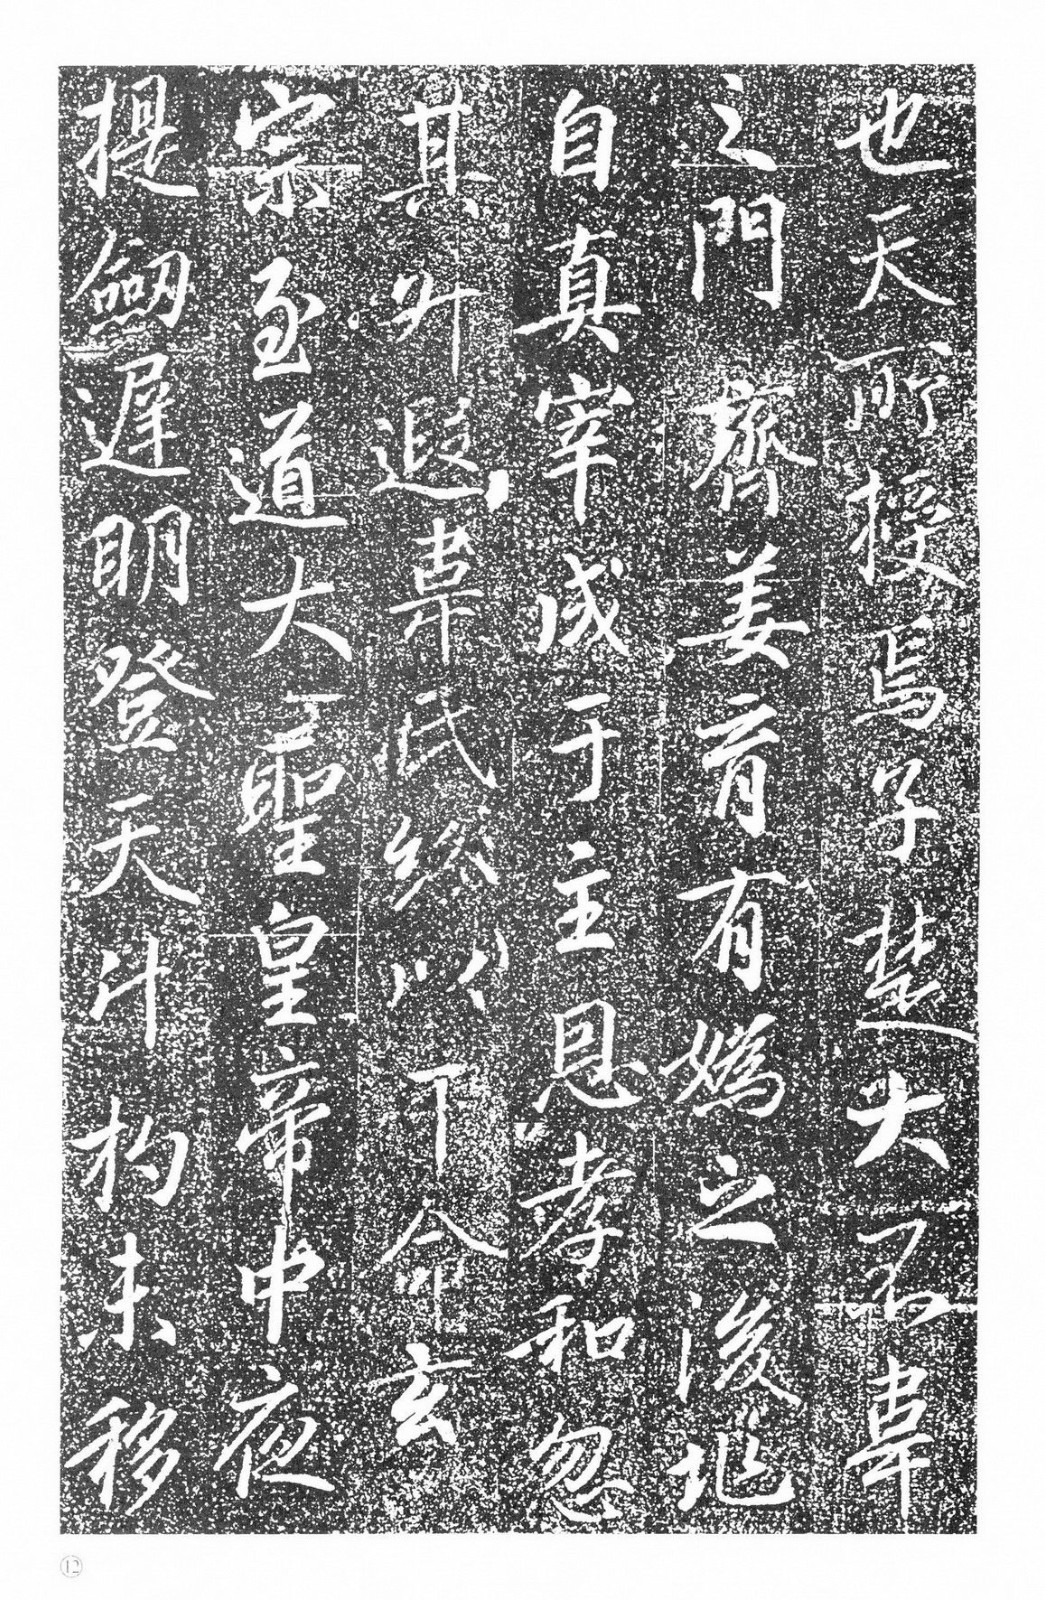 也天所授焉子楚大不韋
之門齊姜育有媯之後地
自真宰成于主恩孝和忽
其升遐韋氏綹以下命玄
宗至道大聖皇帝中夜
提劒遲明登天斗杓未移
12